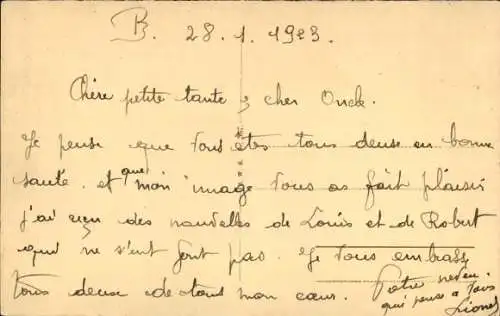 B. 28.1.1923.
Chère petite tante, cher Oncle.
Je pense que vous êtes tous deuse en bonne
santé. et que mon image vous as fait plaisir
j'ai reçu des nouvelles de Louis et de Robert
qui ne s'ent font pas. Je vous embrasse
tous deuse de tous mon cœur. Votre neveu.
qui pense a vous
Lionel